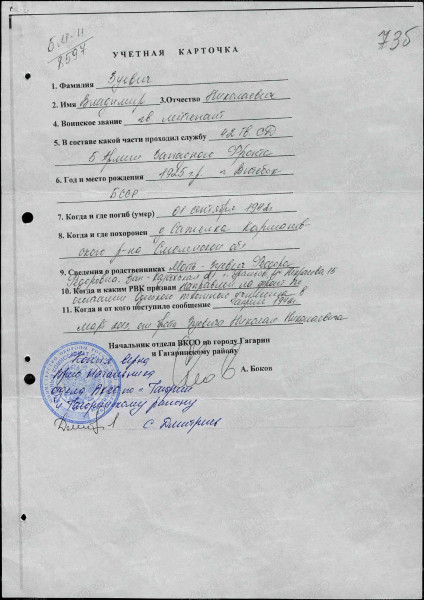 735
8597
УЧЕТНАЯ КАРТОЧКА
1. Фамилия Зуевич
2. Имя Владимир 3.Отчество Николаевич
4. Воинское звание гв лейтенант
5. В составе какой части проходил службу 42 гв СД
5 Армии Западного Фронта
6. Год и место рождения 1925 г. г Витебск
БССР
7. Когда и где погиб (умер) 01 сентября 1942г
8. Когда и где похоронен с Карманов-
ского р-на Смоленской обл
9. Сведения о родственниках Мать- Зуевич
10. Когда и каким РВК призван направлен на фронт по
окончании
11. Когда и от кого поступило сообщение
от брата Зуевича Николая Николаевича
Начальник отдела ВКСО по городу Гагарин
и Гагаринскому району
А. Боков
Копия верна
Врио начальника
отдела ВКСО по г Гагарин
и Гагаринскому району
С Дмитриев